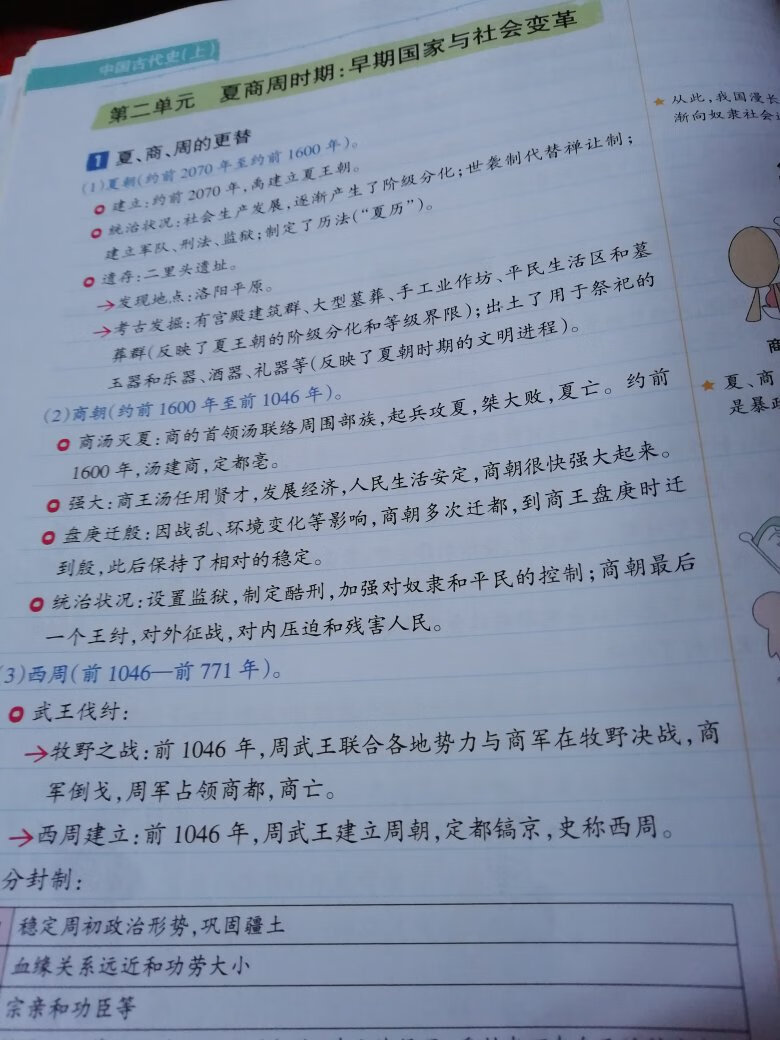 中国古代史(上)
第二单元 夏商周时期:早期国家与社会变革
1 夏、商、周的更替
(1)夏朝(约前2070年至约前1600年)。
建立:约前2070年,禹建立夏王朝。
统治状况:社会生产发展,逐渐产生了阶级分化;世袭制代替禅让制;
建立军队、刑法、监狱;制定了历法(“夏历”)。
遗存:二里头遗址。
→发现地点:洛阳平原。
→考古发掘:有宫殿建筑群、大型墓葬、手工业作坊、平民生活区和墓
葬群(反映了夏王朝的阶级分化和等级界限);出土了用于祭祀的
玉器和乐器、酒器、礼器等(反映了夏朝时期的文明进程)。
(2)商朝(约前1600年至前1046年)。
商汤灭夏:商的首领汤联络周围部族,起兵攻夏,桀大败,夏亡。约前
1600年,汤建商,定都亳。
强大:商王汤任用贤才,发展经济,人民生活安定,商朝很快强大起来。
盘庚迁殷:因战乱、环境变化等影响,商朝多次迁都,到商王盘庚时迁
到殷,此后保持了相对的稳定。
统治状况:设置监狱,制定酷刑,加强对奴隶和平民的控制;商朝最后
一个王纣,对外征战,对内压迫和残害人民。
3)西周(前1046—前771年)。
武王伐纣:
→牧野之战:前1046年,周武王联合各地势力与商军在牧野决战,商
军倒戈,周军占领商都,商亡。
→西周建立:前1046年,周武王建立周朝,定都镐京,史称西周。
分封制:
稳定周初政治形势,巩固疆土
血缘关系远近和功劳大小
宗亲和功臣等
★ 从此,我国漫长
渐向奴隶社会
商
★ 夏、商
是暴政